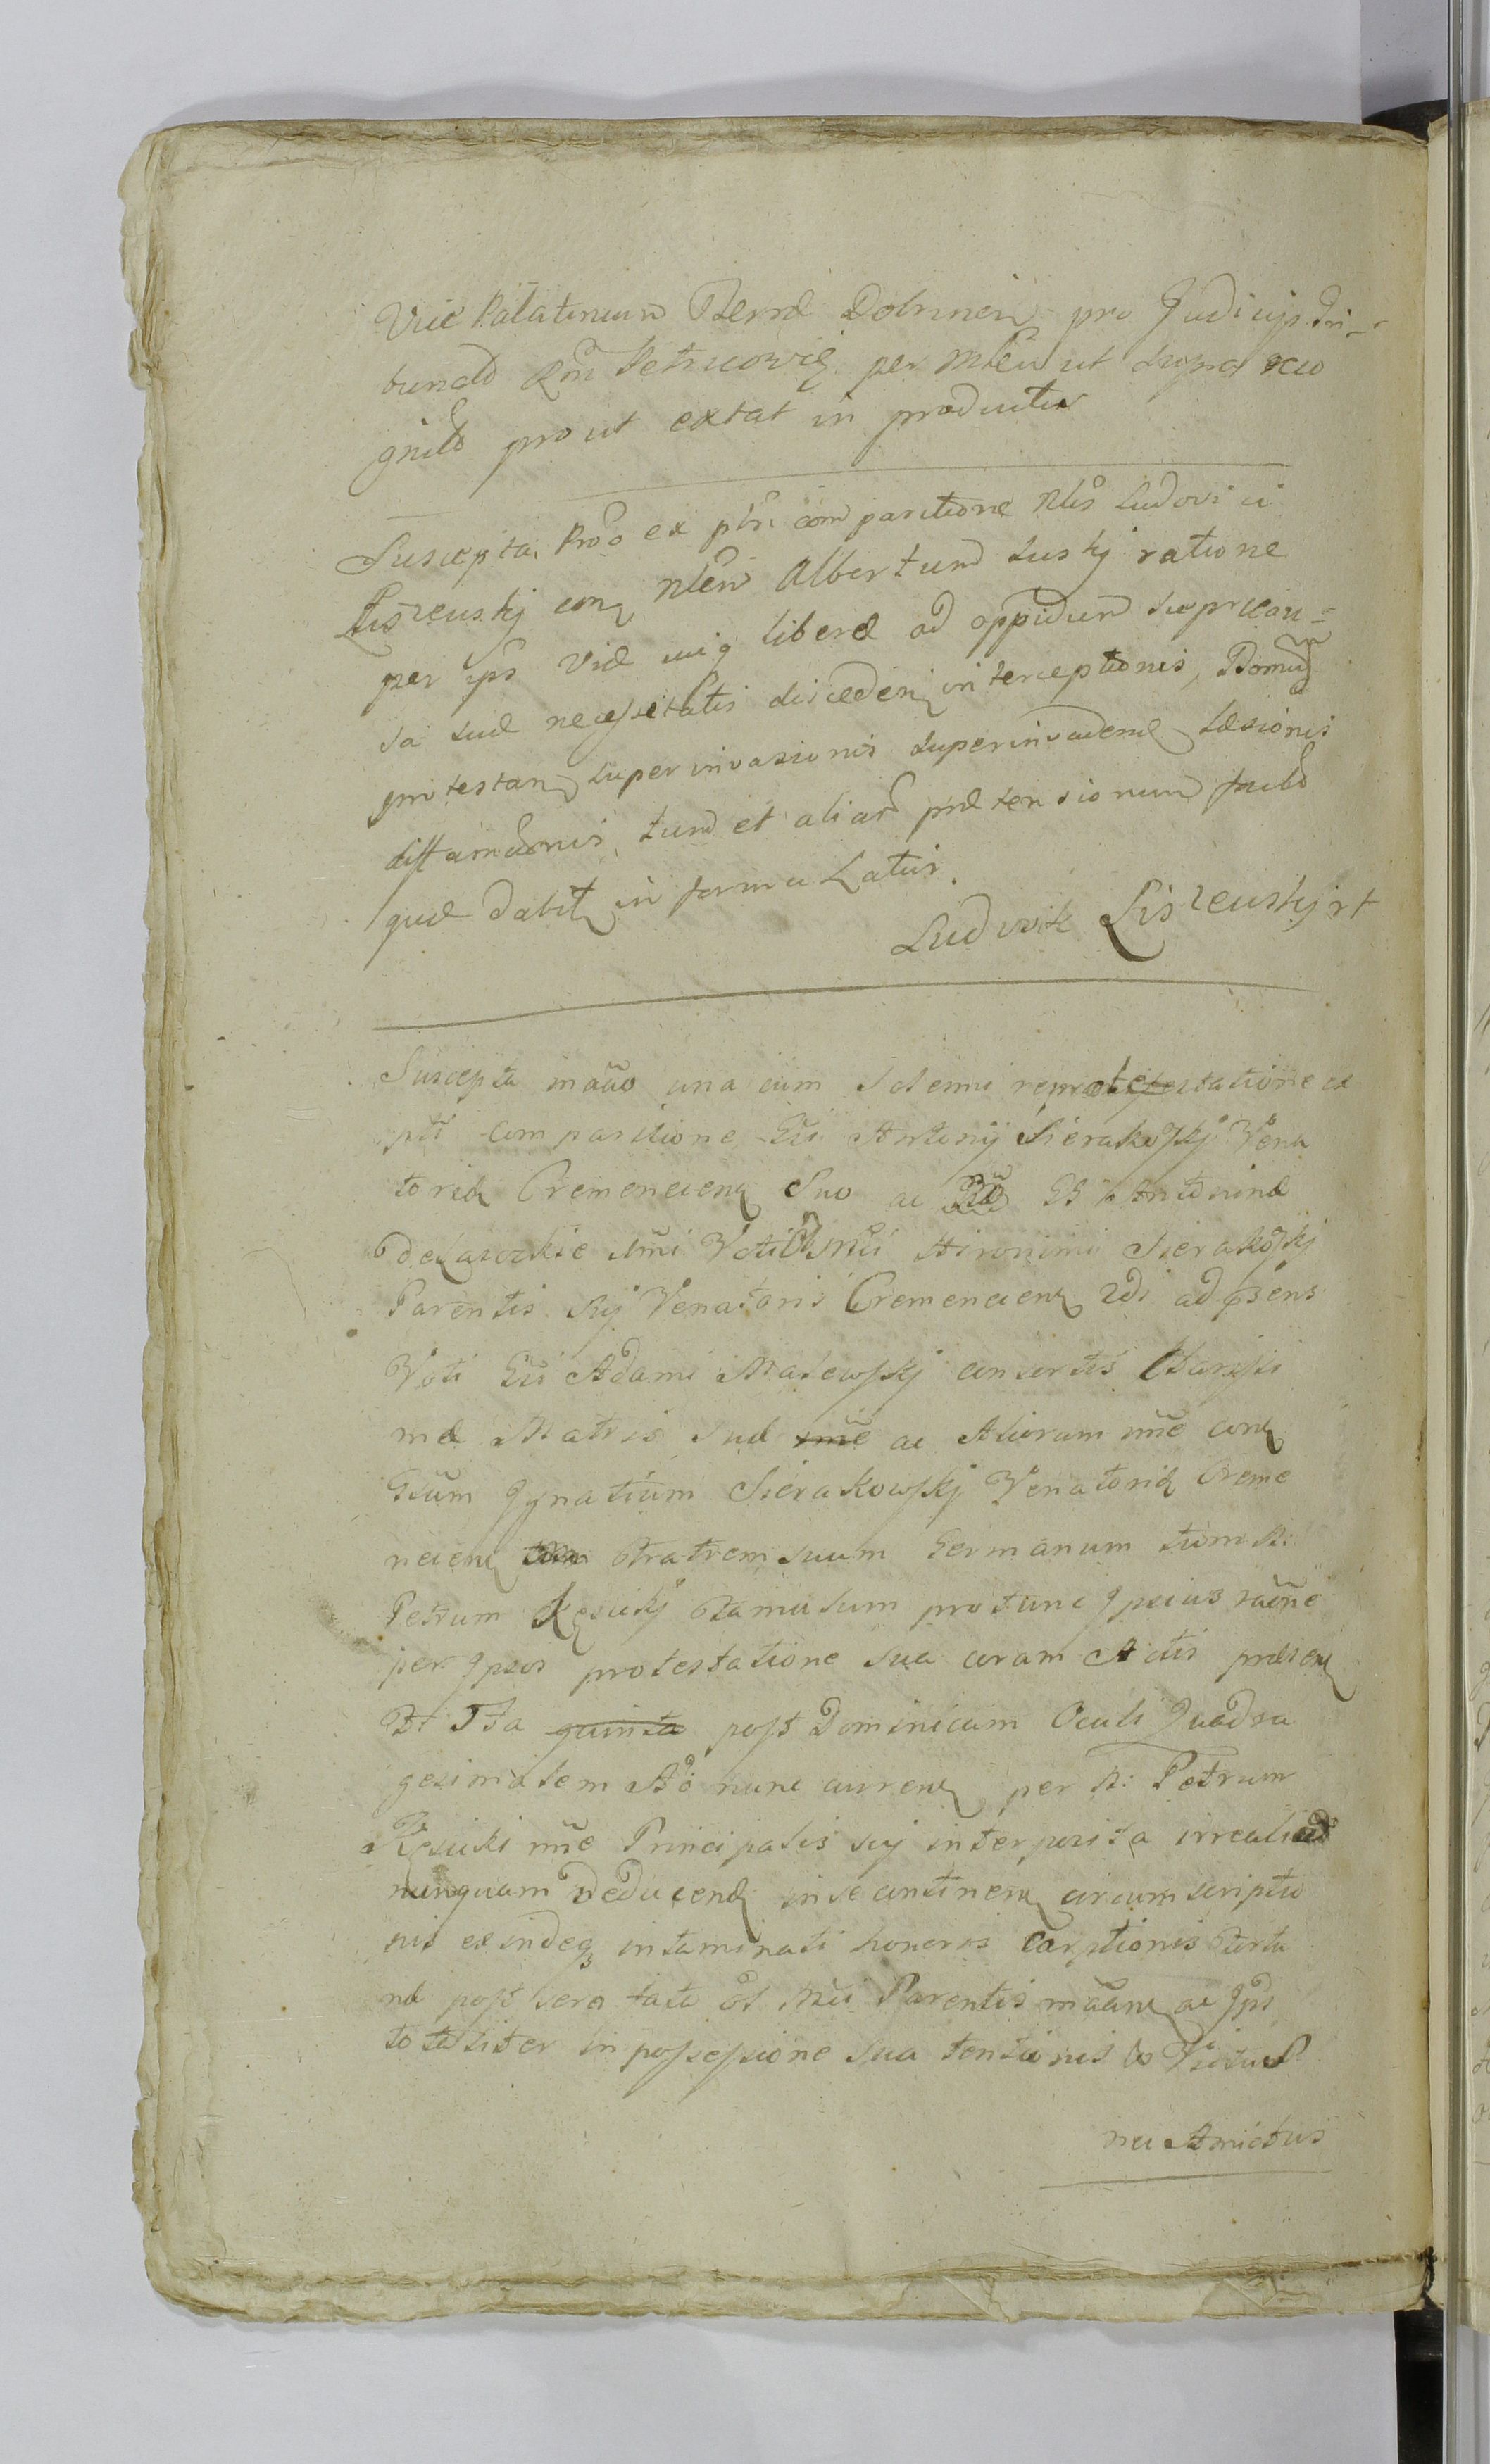 Vice Palatinum Terræ Dobrinen pro Judicijs Tri-
bunal Rni Petricovien per Mlem ut supra reco
gnito prout extat in productu
Suscepta Proo ex psti comparitione Nlis Ludovici
Liszeuskj con Nlem Albertum Suskj ratione
per ips viæ cuiq liberæ ad oppidum
sa suæ necessitatis discedeni interceptionis, Domus
protestan superinvasionis superinvadenæ læsionis
diffamaonis, tum et aliar prætensionum
quæ dabit in forma Latius.
Ludwik Liszeuskj
Suscepta maao una cum solenni reprotestatione ex
psti comparitione Gsi Antonij Sierakoskj Vena
torid Cremenecien Suo ac Gs Antoninæ
1mi Voti Mci Hironimi Sierakoskj
Parentis Sij Venatoris Cremenecien 2di ad psens
Voti Gsi Adami Malewskj consortis Charissi
mæ Matris suæ ac Aliorum nñe con
Gsum Ignatium Sierakowskj Venatorid Creme
necien Fratrem suum Germanum tum N:
Petrum Kęsickj Famulum protunc Ipsius raõne
per Ipsos protestatione sua coram Actis præsen
Fr 5ta quinta post Dominicam Oculi Quadra
gesimalem Aō nunc curren per N: Petrum
Kęsicki nñe Principalis sui interposita irrealiad
nunquam Deducend in se continen circumscriptio
nis exindeq intaminati honoris carptionis Fortu
næ post sera fata ol Mci Parentis maan ac Ips
totaliter in possessione sua tentionis
nec Amictus